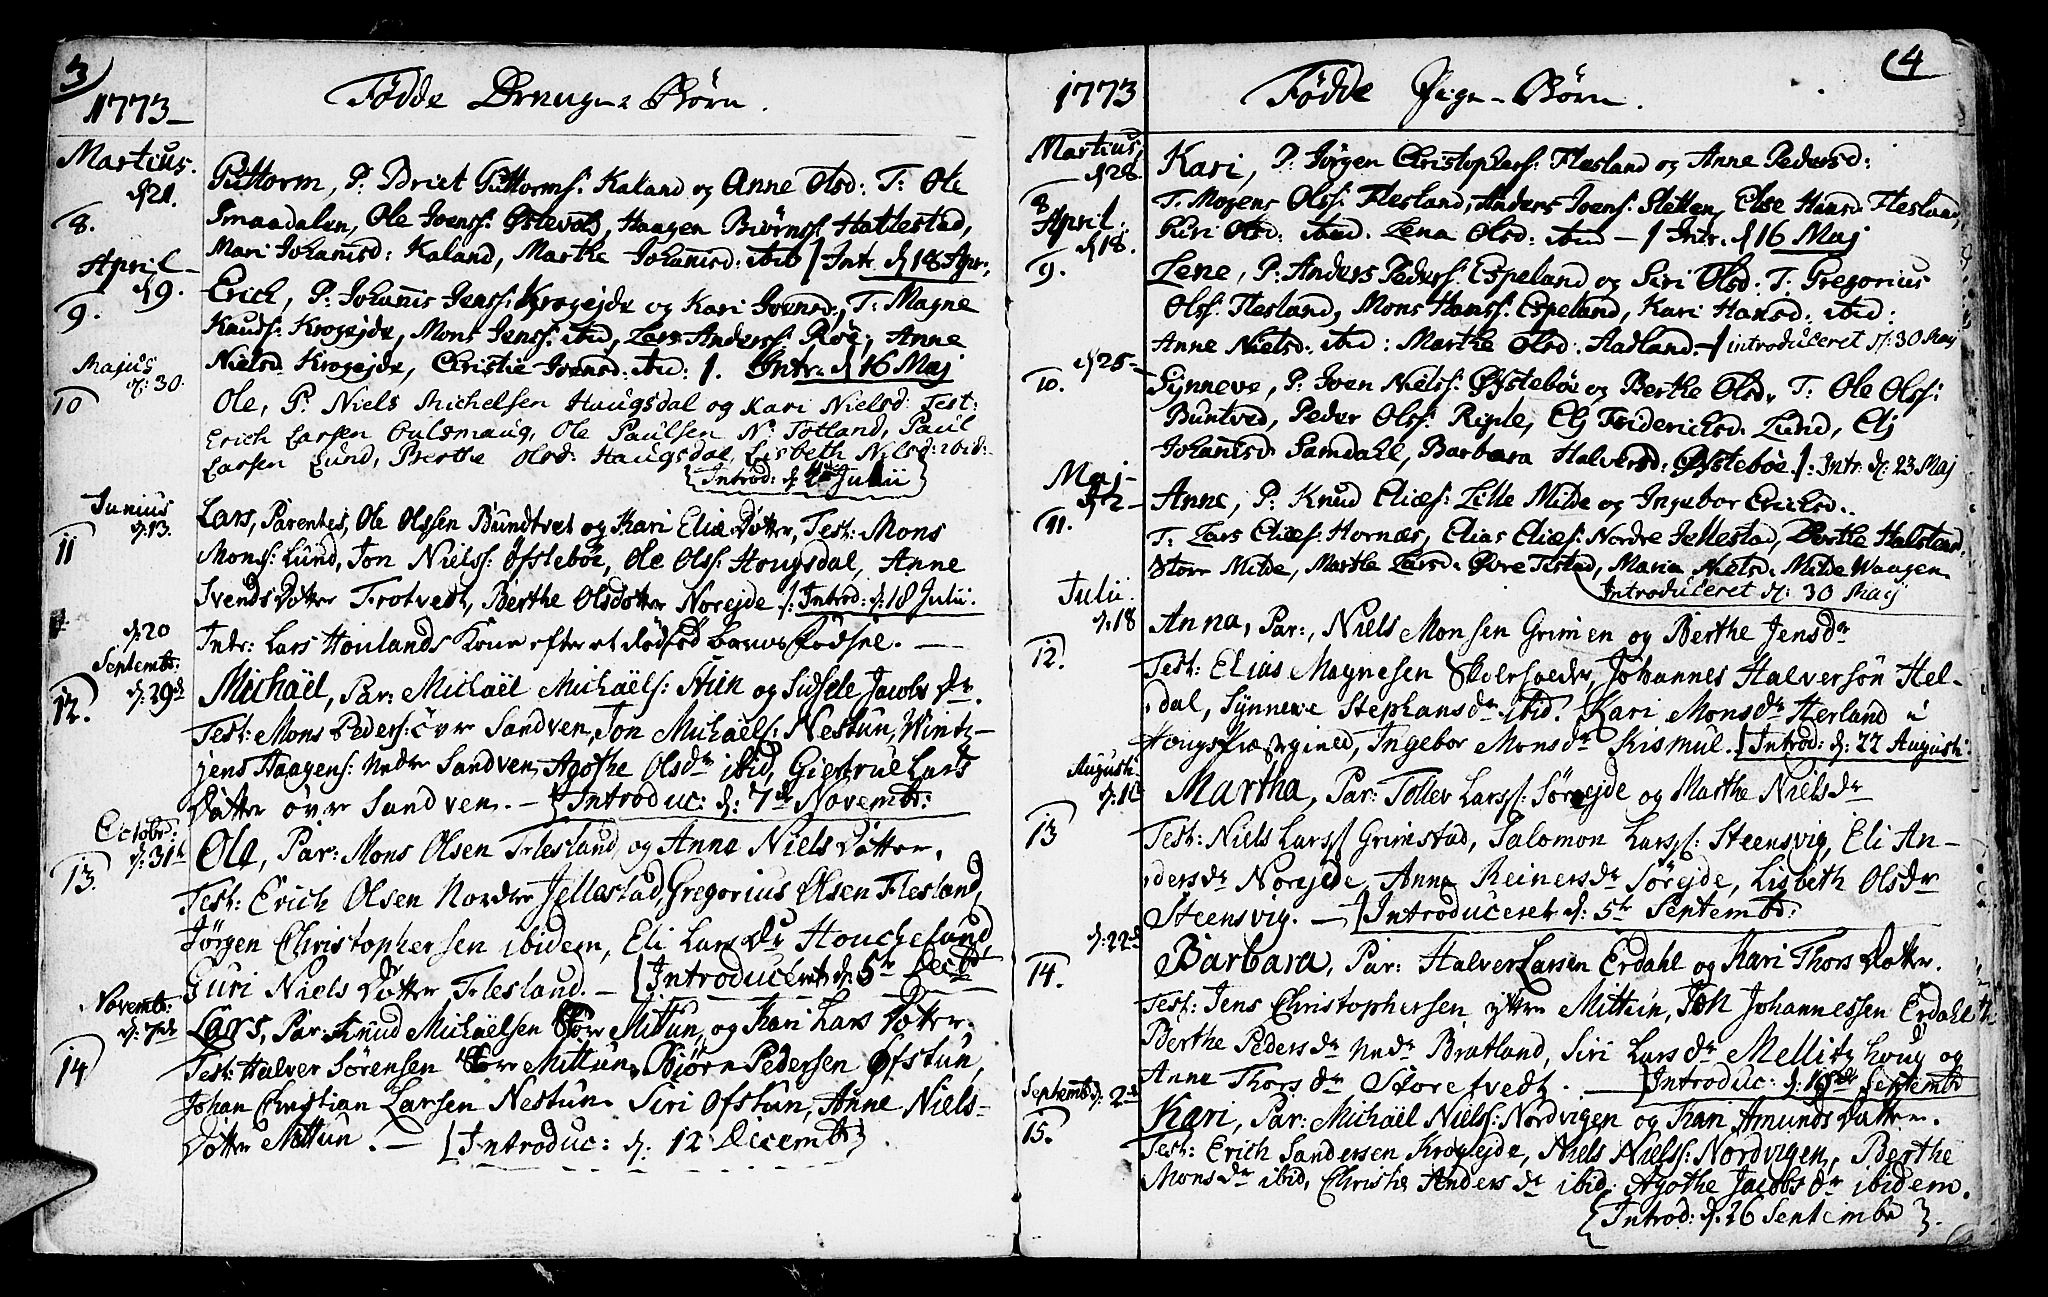 3)
1773
Födde Drenge Börn.
Martius.
d 21.
8.
Guttorm, P. Briet Guttormss: Kaland og Anne Olsd: T: Ole
Smaadalen, Ole Joenss: Østevold, Haagen Biörnss. Hattestad,
Mari Johansd: Kaland, Marthe Johannsd: ibid / Intr. d 18 Apr:
April
d 9.
9.
Erich, P: Johannis Jenss: Krogejde og Kari Joensd: T: Magne
Knuds: Krogejde, Mons Jenss: ibid, Lars Anderss: Röe, Anne
Nielsd Krogejde, Christie Joensd: ibid: /. Intr. d 16 Maj
Majus
d: 30.
10
Ole, P. Niels Michelsen Haugsdal og Kari Nielsd: Test:
Erich Larsen, Ole Paulsen N: Totland, Paul
Larsen Lund, Berthe Olsd: Haugsdal, Lisbeth Nilsd: ibid:
{Introd: d Julii}
Junius
d. 13.
11
Lars, Parentes, Ole Olssen Bundtvet og Kari Eliæ Dotter, Test: Mons
Monss: Lund, Jon Nielss: Öfsteböe, Ole Olss: Hougsdal, Anne
Svends Dotter Trotvedt, Berthe Olsdotter Norejde /: Introd: d: 18 Julii.
d: 20
Intr: Lars Houlands Kone efter et dödfød barns födsel.
Septembr:
d: 29de
12.
Michaël, Par: Michaël Michaëls: Stien og Sidsele Jacobs dr.
Test: Mons Peders: övre Sandven, Jon Michaëls: Nestun, Wintz-
jens Haagens: Nedre Sandven, Agothe Olsdr ibid, Giertrue Lars
Dotter övre Sandven. — {Introduc: d: 7de Novembr:
Octobr:
d: 31te
13.
Ole, Par: Mons Olsen Flesland og Anna Niels Dotter.
Test: Erich Olsen Nordre Jellestad, Gregorius Olsen Flesland,
Jörgen Christophersen ibidem, Eli Larsdr Houcheland,
Guri Niels Dotter Flesland. — {Introduceret d: 5te Decbr
Novembr:
d: 7de
14
Lars, Par: Knud Michaëlsen Store Mittun, og Kari Lars Dotter.
Test: Halver Sörensen Store Mittun, Bjørn Pedersen Ofstun,
Johan Christian Larsen Nestun, Siri Ofstun, Anne Niels-
Dotter Mittun. — {Introduc: d: 12 Decembr}.
(4
1773
Födde Pige-Börn.
Martius,
d 28
8
Kari, P: Jörgen Christophers: Flesland og Anne Pedersd:
T. Mogens Olss: Flesland, Anders Joens: Sletten, Else Hansd. Flesland,
Guri Olsd: ibid. Lena Olsd: ibid — / Intr. d 16 Maj
April.
d 18.
9.
Lene, P: Anders Pederss: Espeland og Siri Olsd: T: Gregorius
Olss: Flesland, Mons Hanss: Espeland, Kari Hansd: ibid:
Anne Nielsd: ibid: Marthe Olsd: Aadland. — / introduceret d: 30 Maj
d 25-
10.
Synneve, P: Joen Nielss: Østeböe og Berthe Olsd, T: Ole Olss:
Buntved, Peder Olss: Riple, Elj Friderichsd. Lund, Elj
Johannsd. Samdahl, Barbara Halversd: Østeböe /: Intr. d: 23 Maj
Maj-
d 2-
11.
Anne, P: Knud Eliæs: Lille Milde og Ingebor Ericksd.
T. Lars Eliæs: Hornæs, Elias Eliæs: Nordre Jellestad, Berthe Halstensd.
Store Milde, Marthe Larsd. Øvre Tistad, Maria Nielsd. Milde Waagen
Introduceret d: 30 Maj
Julii.
d: 18
12.
Anna, Par:, Niels Monsen Grimen og Berthe Jensdr
Test: Elias Magnesen Skolehoeder, Johannes Halversön Hel-
dal, Synneve Stephansdr ibid. Kari Monsdr Herland i
Hougs Præstegield, Ingebor Monsdr Kismul. {Introd: d: 22 Augusti
Augusti
d: 1
13
Martha, Par: Tollev Larss: Sörejde og Marthe Nielsdr
Test: Niels Larss: Grimstad, Salomon Larss: Steensvig, Eli An-
dersdr Norejde, Anna Reinersdr Sörejde, Lisbeth Olsdr
Steensvig. — {Introduceret d: 5te Septembr:
d: 22de
14.
Barbara, Par: Halver Larsen Erdahl og Kari Thors Dotter.
Test: Jens Christophersen yttre Mittun, Jon Johannessen Erdahl
Berthe Pedersdr Nedr Bratland, Siri Larsdr Melling houg og
Anna Thorsdr Storetvedt. — {Introduc: d: Septembr
Septembr d: 2de
15.
Kari, Par: Michaël Nielss: Nordvigen og Kari Amunds Dotter.
Test: Erich Sandersen Krogejde, Niels Nielss: Nordvigen, Berthe
Monsdr ibid, Christie Andersdr ibid: Agothe Jacobsdr ibidem.
{Introd: d: 26 Septembr}.